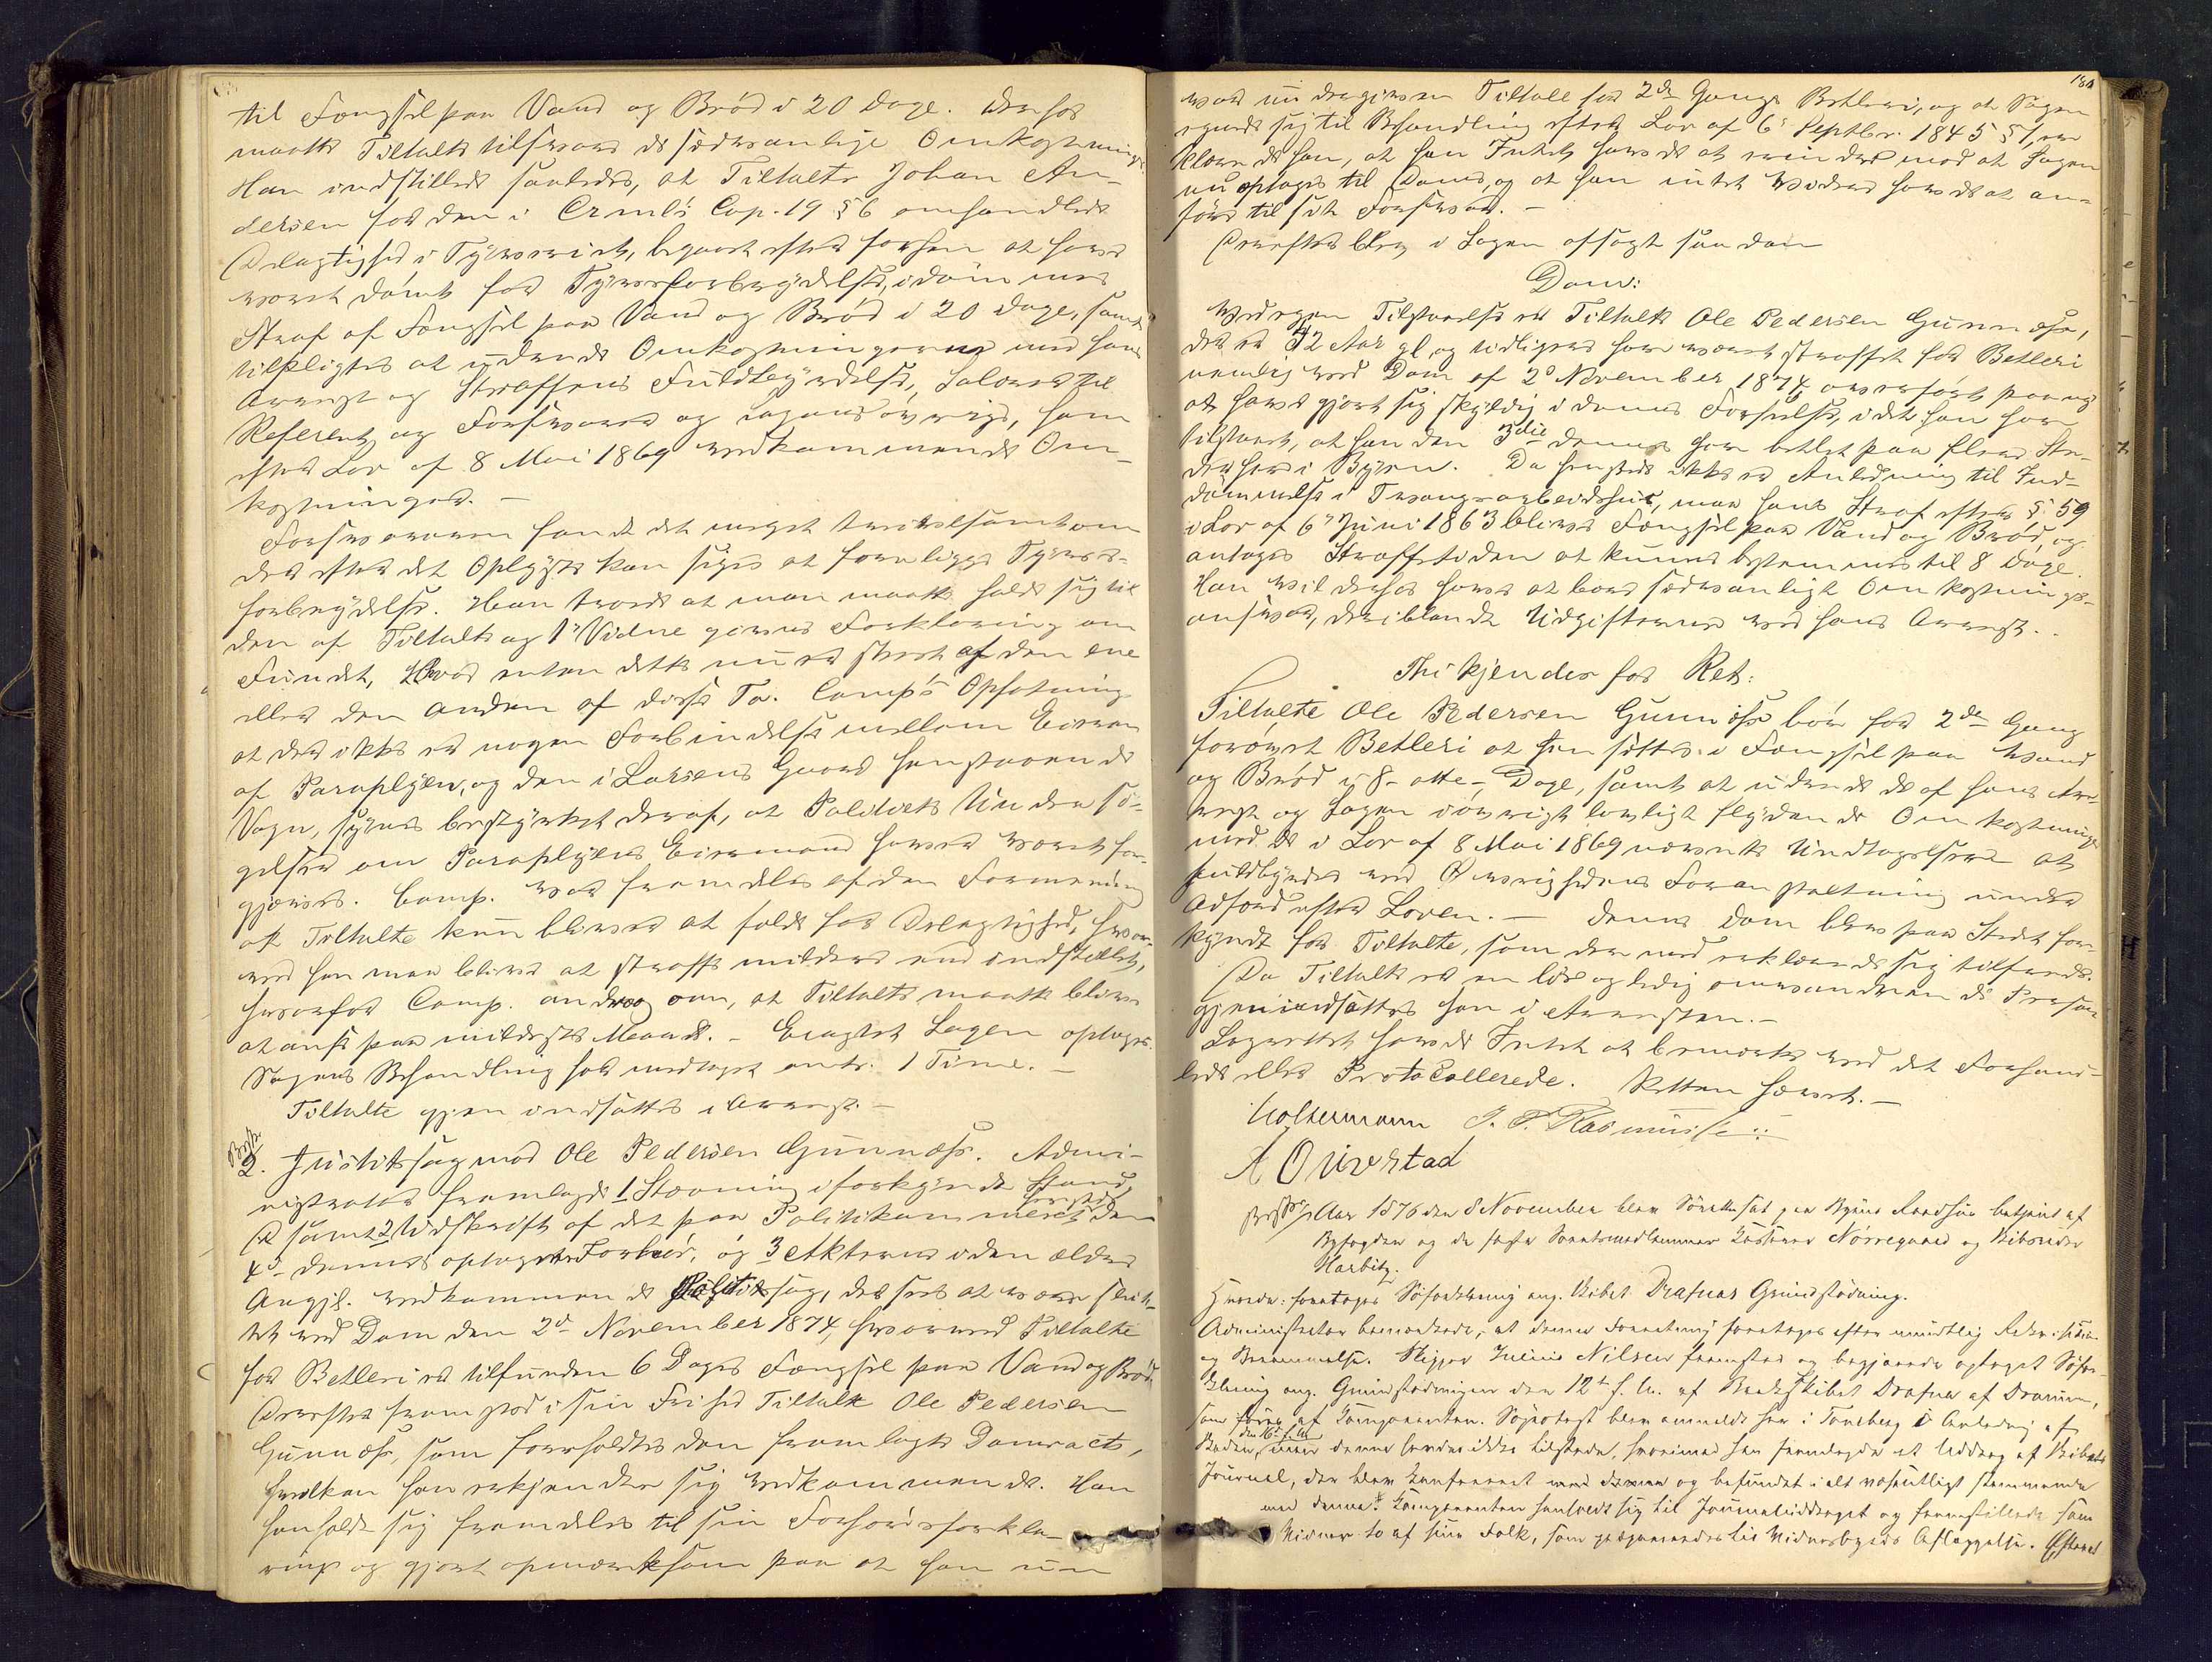 til Fængsel paa Vand og Brød i 20 Dage. Derhos
maatte Tiltalte tilsvare de sædvanlige Omkostninger.
Han indstillede saaledes, at Tiltalte Johan An-
dersen for den i Crmls Cap. 19 § 6 omhandlede
Delagtighed i Tyveri, begaaet efter forhen at have
været dømt for Tyvsforbrydelse, idømmes
Straf af Fængsel paa Vand og Brød i 20 Dage, samt
tilpligtes at udrede Omkostningerne ved hans
Arrest og Straffens Fuldbyrdelse, Salær til
Referent og Forsvarer og Sagens øvrige, ham
efter Lov af 8 Mai 1869 vedkommende Om-
kostninger. –
Forsvareren fandt det meget tvivlsomt om
der efter det Oplyste kan siges at foreligge Tyvs-
forbrydelse. Han troede at man maatte holde sig til
den af Tiltalte og 1ste Vidne givne Forklaring om
Fundet, hvad enten dette nu er skeet af den ene
eller den anden af disse To. Comp's Opfatning
at der ikke er nogen Forbindelse mellem Eieren
af Paraplyen, og den i Larsens Gaard henstaaende
Vogn, synes bestyrket deraf, at Politiets Undersø-
gelser om Paraplyens Eiermand har været for-
gjæves. Comp. var fremdeles af den Formening
at Tiltalte kun bliver at fælde for Delagtighed, hvor-
ved han maa blive at straffe mildere end indstillet,
hvorfor Comp. androg om, at Tiltalte maatte blive
at ansee paa mildeste Maade. – Eragtet Sagen optages.
Sagens Behandling har medtaget omtr. 1 Time. –
Tiltalte gjenindsattes i Arrest. –
2. Justitssag mod Ole Pedersen Gunnøss. Admi-
nistrator fremlagde 1 Stævning i forkyndt Stand,
samt 2 Udskrift af det paa Politikammeret den
4de dennes optagne Forhør, og 3 Akterne i den ældre
Angjl. vedkommende Politisag, der sees at være slut-
tet ved Dom den 2den November 1874, hvorved Tiltalte
for Betleri er tilfunden 6 Dages Fængsel paa Vand og Brød.
Derefter fremstod i sin Frihed Tiltalte Ole Pedersen
Gunnøss, som foreholdtes den fremlagte Domsact,
hvilken han erkjender sig vedkommende. Han
henholdt sig fremdeles til sin Forhørsforkla-
ring og gjort opmærksom paa at han nu
184
var undergiven Tiltale for 2den Gangs Betleri, og at Sagen
egnede sig til Behandling efter Lov af 6te Septbr. 1845 § 1, er-
klærede han, at han Intet havde at erindre mod at Sagen
nu optages til Doms, og at han intet videre havde at an-
føre til sit Forsvar. –
Derefter blev i Sagen afsagt saadan
Dom:
Ved egen Tilstaaelse er Tiltalte Ole Pedersen Gunnøss,
der er 42 Aar gl. og tidligere har været straffet for Betleri
nemlig ved Dom af 2den November 1874 overført paany
at have gjort sig skyldig i denne Forseelse, idet han har
tilstaaet, at han den 3die dennes har betlet paa flere Ste-
der her i Byen. Da hensees ikke er Anledning til Ind-
dømmelse i Tvangsarbeidshus, maa hans Straf efter § 59
i Lov af 6te Juni 1863 blive Fængsel paa Vand og Brød, og
antages Straffetiden at kunne bestemmes til 8 Dage.
Han vil derhos have at bære sædvanligt Omkostnings-
ansvar, deriblandt Udgifterne ved hans Arrest. .
Thi kjendes for Ret:
Tiltalte Ole Pedersen Gunnøss bør for 2den Gang
forøvet Betleri at hensættes i Fængsel paa Vand
og Brød i 8 – otte – Dage, samt at udrede de af hans Ar-
rest og Sagen iøvrigt lovligt flydende Omkostninger
med de i Lov af 8 Mai 1869 nævnte Undtagelser. At
fuldbyrdes ved Øvrighedens Foranstaltning under
Adfærd efter Loven. – Denne Dom blev paa Stedet for-
kyndt for Tiltalte, som dermed erklærede sig tilfreds.
Da Tiltalte er en løs og ledig omvandrende Person
gjenindsattes han i Arresten. –
Lagrettet havde Intet at bemærke ved det Forhand-
lede eller Protocollerede. Retten hævet. –
Holtermann J. P. Rasmussen
A Qvirstad
Aar 1876 den 8 November blev Søret sat paa Byens Raadhus betjent af
Byfogden og de faste Søretsmedlemmer Nørregaard og Skibsreder
Harbitz.
Hvorda: foretoges Søforklaring ang. Skibet Drafnas Grundstødning.
Administrator bemærkede, at denne Forretning foretages efter mundtlig
og Berammelse. Skipper Julius Nilsen fremstod og begjærede optaget Søfor-
klaring ang. Grundstødningen den 12te f. M. af Barkskibet Drafna af Drammen,
som føres af Komparenten. Søprotest blev anmeldt her i Tønsberg i Anledning af
den 16de f. M.
denne havdes ikke tilstede, hvorimod han fremlagde et Uddrag af Skibets
Journal, der blev konfereret med denne og befundet i alt væsentligt stemmende
med denne. Komparenten henholdt sig til Journaluddraget og fremstillede som
Vidner to af sine Folk, som præpareredes til Vidnesbyrds Aflæggelse. Efterat